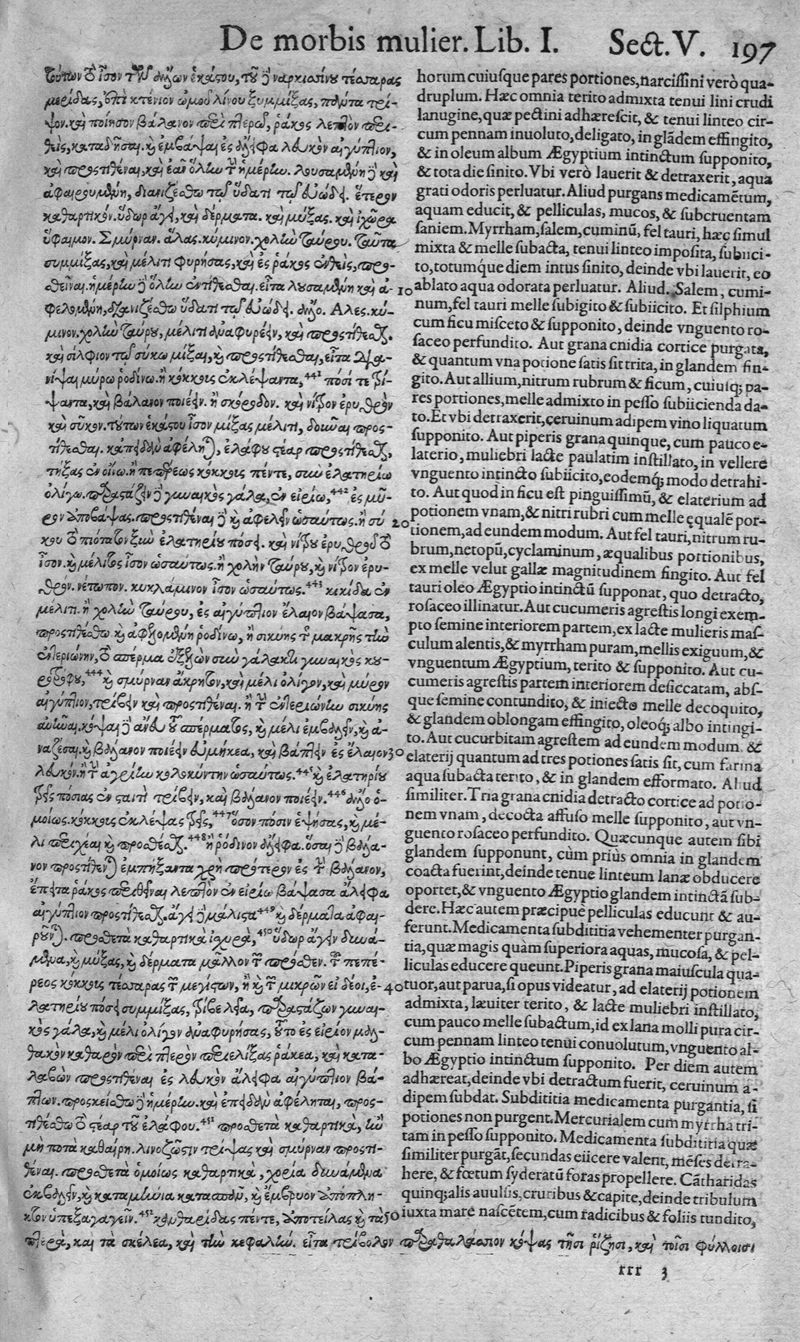 De morbis mulier. Lib. I. Sect. V. 197
τούτων τὸ ἴσον τῶν ἄλλων ἑκάστου, τοῦ δὲ ναρκισσίνου τέσσαρας
μερίδας, κτένιον ὠμολίνου ξυμμίξας, πάντα τρί-
ψον. καὶ ποίησον βάλανον περὶ πτερῷ, ῥάκος λεπτὸν περι-
θεὶς, καταδῆσαι. καὶ ἐμβάψαι ἐς ἄλειφα λευκὸν αἰγύπτιον,
καὶ προστιθέναι, καὶ ἐᾶν ὅλην τὴν ἡμέρην. λουσαμένη δὲ καὶ
ἀφαιρευμένη, διανιζέσθω τῷ ὕδατι τῷ εὐώδει. ἕτερον
καθαρτικὸν. ὕδωρ ἄγει, καὶ δέρματα. καὶ μύξας. καὶ ἰχῶρα
ὕφαιμον. Σμύρναν. ἅλας. κύμινον. χολὴν ταύρου. ταῦτα
συμμίξας, καὶ μέλιτι φυρήσας, καὶ ἐς ῥάκος ἐνθεὶς, προσ-
θεῖναι. ἡμέρην δὲ ὅλην ἐντιθέσθαι. εἶτα λουσαμένη καὶ ἀ- 10
φελομένη, διανιζέσθω ὕδατι τῷ εὐώδει. ἄλλο. Ἅλες. κύ-
μινον. χολὴν ταύρου, μέλιτι διαφυρᾷν, καὶ προστίθεσθαι.
καὶ σίλφιον τῷ σύκῳ μίξαι, καὶ προστίθεσθαι, εἶτα
νίψαι μύρῳ ῥοδίνῳ. ἢ κόκκους ἐκλέψαντα, 441 πόσι τρί-
ψαντα, καὶ βάλανον ποιέειν. ἢ σκόροδον. καὶ νίτρον ἐρυθρὸν
καὶ σῦκον. τούτων ἑκάστου ἴσον μίξας μέλιτι, δοῦναι προσ-
τίθεσθαι. ἐλάφου στέαρ προστίθεσθαι,
τήξας ἐν οἴνῳ. ἢ πεπέρεως κόκκους πέντε, σὺν ἐλατηρίῳ
ὀλίγῳ. παραστάζειν δὲ γυναικὸς γάλα, ἐν εἰρίῳ, 442 ἐς μύ-
ρον ἀποβάψας. προστιθέναι δὲ καὶ ἀφελεῖν ὡσαύτως. ἢ σύ- 20
κου τὸ πιότατον ξὺν ἐλατηρίου πόσει. καὶ νίτρου ἐρυθροῦ τὸ
ἴσον. καὶ μέλιτος ἴσον ὡσαύτως. ἢ χολὴν ταύρου, καὶ νίτρον ἐρυ-
θρὸν. νέτωπον. κυκλάμινον ἴσον ὡσαύτως. 443 κικίδα ἐν
μέλιτι. ἢ χολὴν ταύρου, ἐς αἰγύπτιον ἔλαιον βάψασα,
προστιθέσθω καὶ ῥοδίνῳ, ἢ σικύης τῆς μακρῆς τὴν
ἐντεριώνην, τὸ σπέρμα ἐξελὼν σὺν γάλακτι γυναικὸς κου-
ροτρόφου, 444 καὶ σμύρναν ἄκρητον, καὶ μέλι ὀλίγον, καὶ μύρον
αἰγύπτιον, τρίβειν καὶ προστιθέναι. ἢ τὴν ἐντεριώνην σικύης
κόψαι ἄνευ τοῦ σπέρματος, καὶ μέλι ἐμβαλεῖν, καὶ ἀ-
ναζέσαι. καὶ βάλανον ποιέειν εὐμήκεα, καὶ βάπτειν ἐς ἔλαιον 30
λευκόν. ἢ τὴν ἀγρίην κολοκύντην ὡσαύτως. 445 καὶ ἐλατηρίου
τρεῖς πόσιας ἐν σταιτὶ τρίβειν, καὶ βάλανον ποιέειν. 446 ἄλλο ὁ-
μοίως. κόκκους ἐκλέψας τρεῖς, 447 ὅσον πόσιν ἑψήσας, καὶ μέ-
λι περιχέαι καὶ προσθέσθαι. 448 ἢ ῥόδινον ἄλειφα. ὅσαι δὲ βάλα-
νον προστίθενται ἐμπήξαντα χρὴ πρότερον ἐς τὴν βάλανον,
ἔπειτα ῥάκος περιθεῖναι λεπτὸν ἐν εἰρίῳ βάψασα ἄλειφα
αἰγύπτιον προστίθεσθαι. ἄγει δὲ μάλιστα 449 καὶ δέρματα ἀφαι-
ρεῦνται. προσθετὰ καθαρτικὰ ἰσχυρὰ, 450 ὕδωρ ἄγειν δυνά-
μενα, καὶ μύξας, καὶ δέρματα μᾶλλον τῶν πρόσθεν. τοῦ πεπέ-
ρεος κόκκους τέσσαρας τῶν μεγίστων, ἢ καὶ τῶν μικρῶν εἰ δέοι, ἐ- 40
λατηρίου πόσει συμμίξας, τρίβε λεῖα, παραστάζων γυναι-
κὸς γάλα, καὶ μέλι ὀλίγον διαφυρήσας, τοῦτο ἐς εἴριον μαλ-
θακὸν καθαρὸν περὶ πτερὸν περιελίξας ῥάκεα, καὶ κατα-
λαβὼν προστιθέναι ἐς λευκὸν ἄλειφα αἰγύπτιον βά-
πτων. προσκείσθω δὲ ἡμέρην. καὶ ἐπειδὰν ἀφέληται, προσ-
τιθέσθω τὸ στέαρ τοῦ ἐλάφου. 451 προσθετὰ καθαρτικὰ, ἢν
μὴ ποτὰ καθαίρῃ. λινόζωστιν τρίψας καὶ σμύρναν προστι-
θέναι. προσθετὰ ὁμοίως καθαρτικὰ, χορία δυνάμενα
ἐκβαλεῖν, καὶ καταμήνια κατασπᾷν, καὶ ἔμβρυον ἀπόπλη-
κτον ὑπεξαγαγεῖν. 452 κανθαρίδας πέντε, ἀποτίλας καὶ τὰ 50
πτερὰ, καὶ τὰ σκέλεα, καὶ τὴν κεφαλὴν. εἶτα τρίβολον παραθαλάσσιον κόψας τῇσι ῥίζῃσι, καὶ τοῖσι φύλλοισι
horum cuiusque pares portiones, narcissini verò qua-
druplum. Hæc omnia terito admixta tenui lini crudi
lanugine, quæ pectini adhærescit, & tenui linteo cir-
cum pennam inuoluto, deligato, in glãdem effingito,
& in oleum album Ægyptium intinctum supponito,
& tota die sinito. Vbi verò lauerit & detraxerit, aqua
grati odoris perluatur. Aliud purgans medicamētum,
aquam educit, & pelliculas, mucos, & subcruentam
saniem. Myrrham, salem, cuminũ, fel tauri, hæc simul
mixta & melle subacta, tenui linteo imposita, subiici-
to, totumq́ue diem intus sinito, deinde vbi lauerit, eo
ablato aqua odorata perluatur. Aliud. Salem, cumi-
num, fel tauri melle subigito & subiicito. Et silphium
cum ficu misceto & supponito, deinde vnguento ro-
saceo perfundito. Aut grana cnidia cortice purgata,
& quantum vna potione satis sit trita, in glandem fin-
gito. Aut allium, nitrum rubrum & ficum, cuiusq; pa-
res portiones, melle admixto in pesso subiicienda da-
to. Et vbi detraxerit, ceruinum adipem vino liquatum
supponito. Aut piperis grana quinque, cum pauco e-
laterio, muliebri lacte paulatim instillato, in vellere
vnguento intincto subiicito, eodemq; modo detrahi-
to. Aut quod in ficu est pinguissimũ, & elaterium ad
potionem vnam, & nitri rubri cum melle ęqualē por-
tionem, ad eundem modum. Aut fel tauri, nitrum ru-
brum, netopũ, cyclaminum, æqualibus portionibus,
ex melle velut gallæ magnitudinem fingito. Aut fel
tauri oleo Ægyptio intinctũ supponat, quo detracto,
rosaceo illinatur. Aut cucumeris agrestis longi exem-
pto semine interiorem partem, ex lacte mulieris mas-
culum alentis, & myrrham puram, mellis exiguum, &
vnguentum Ægyptium, terito & supponito. Aut cu-
cumeris agrestis partem interiorem desiccatam, abs-
que semine contundito, & iniecto melle decoquito,
& glandem oblongam effingito, oleoq; albo intingi-
to. Aut cucurbitam agrestem ad eundem modum. &
elaterij quantum ad tres potiones satis sit, cum farina
aqua subacta terito, & in glandem efformato. Aliud
similiter. Tria grana cnidia detracto cortice ad potio-
nem vnam, decocta affuso melle supponito, aut vn-
guento rosaceo perfundito. Quæcunque autem sibi
glandem supponunt, cùm prius omnia in glandem
coacta fuerint, deinde tenue linteum lanæ obducere
oportet, & vnguento Ægyptio glandem intinctã sub-
dere. Hæc autem præcipuè pelliculas educunt & au-
ferunt. Medicamenta subdititia vehementer purgan-
tia, quæ magis quàm superiora aquas, mucosa, & pel-
liculas educere queunt. Piperis grana maiuscula qua-
tuor, aut parua, si opus videatur, ad elaterij potionem
admixta, læuiter terito, & lacte muliebri instillato,
cum pauco melle subactum, id ex lana molli pura cir-
cum pennam linteo tenui conuolutum, vnguento al-
bo Ægyptio intinctum supponito. Per diem autem
adhæreat, deinde vbi detractum fuerit, ceruinum a-
dipem subdat. Subdititia medicamenta purgantia, si
potiones non purgent. Mercurialem cum myrrha tri-
tam in pesso supponito. Medicamenta subdititia quæ
similiter purgãt, secundas eiicere valent, mēses detra-
here, & fœtum syderatũ foras propellere. Cãtharidas
quinq; alis auulsis, cruribus & capite, deinde tribulum
iuxta mare nascētem, cum radicibus & foliis tundito,
rrr 3